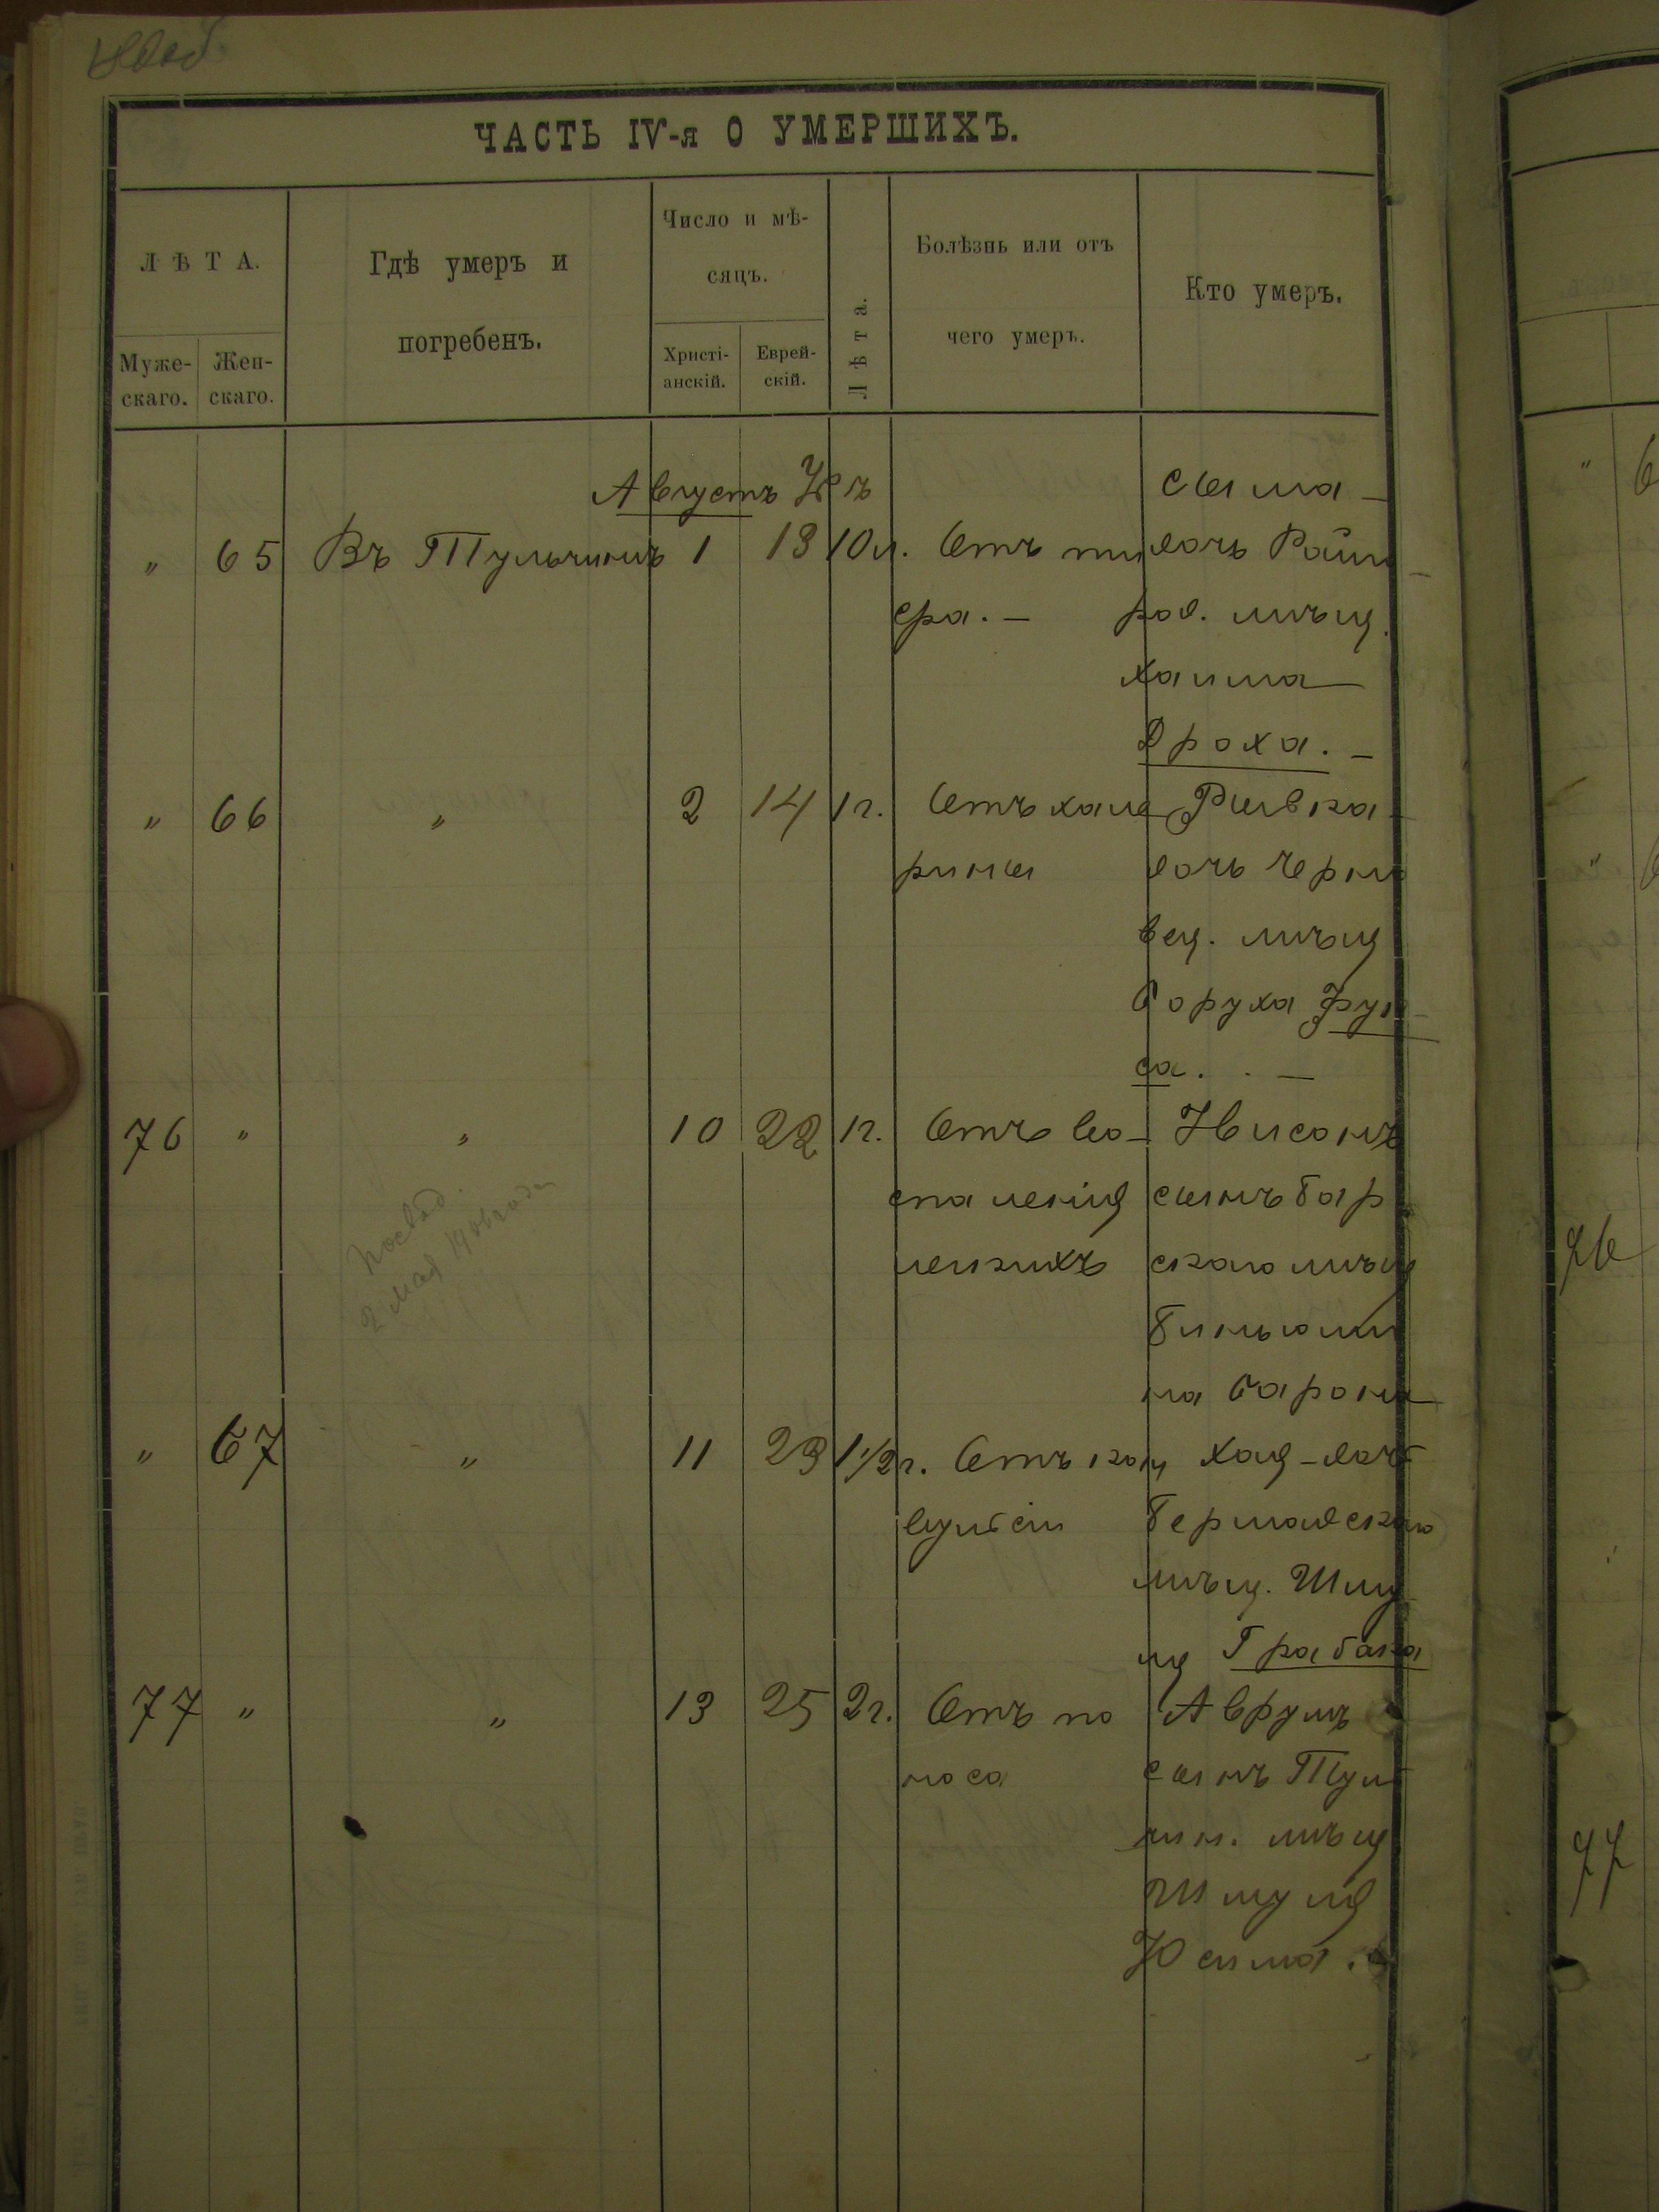 ЧАСТЬ IV-я О УМЕРШИХЪ.
ЛѢТА.
Муже-
скаго.
Жен-
скаго.
Гдѣ умеръ и
погребенъ.
Число и мѣ-
сяцъ.
Христі-
анскій.
Еврей-
скій.
Лѣта.
Болѣзнь или отъ
чего умеръ.
Кто умеръ.
Августъ
" 65 Въ Тульчинѣ 1 13 10 л. Отъ ти
фа. –
Сыма –
дочь Райг
род. мѣщ.
Хаима
Дроха. –
" 66 " 2 14 1 г. Отъ холе
рины
Ривка –
дочь Черно
вец. мѣщ
Боруха Фук
са. –
76 " " 10 22 1 г. Отъ во–
спаленія
легкихъ
Нисонъ
сынъ бар
скаго мѣщ
Биньоми
на Барона
" 67 " 11 23 1½ г. Отъ кон
вульсіи
Хая – дочь
Бершадскаго
мѣщ. Шму
ля Грабака
77 " " 13 25 2 г. Отъ по
носа
Аврумъ
сынъ Туль
чин. мѣщ
Шмуля
2 мая
76
77